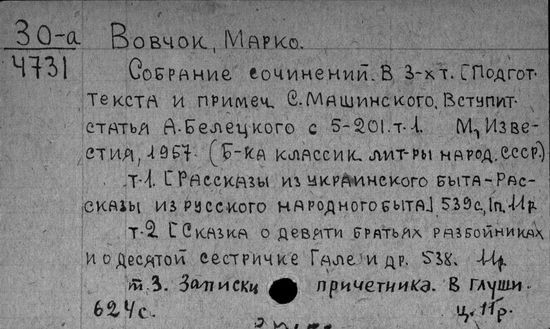 30-а Вовчок, Марко.
4731 Собрание сочинений. В 3-х т. [Подгот.
текста и примеч. С. Машинского. Вступит.
статья А. Белецкого с 5-20]. т. 1. М., Изве-
стия, 1957. (Б-ка классик. лит-ры народ. СССР)
т. 1. [Рассказы из украинского быта - Рас-
сказы из русского народного быта] 539 с., 1п. 11р
т. 2 [Сказка о девяти братьях разбойниках
и о десятой сестричке Гале и др. 538. 11р
т. 3. Записки причетника. В глуши.
624 с. ц. 11р.